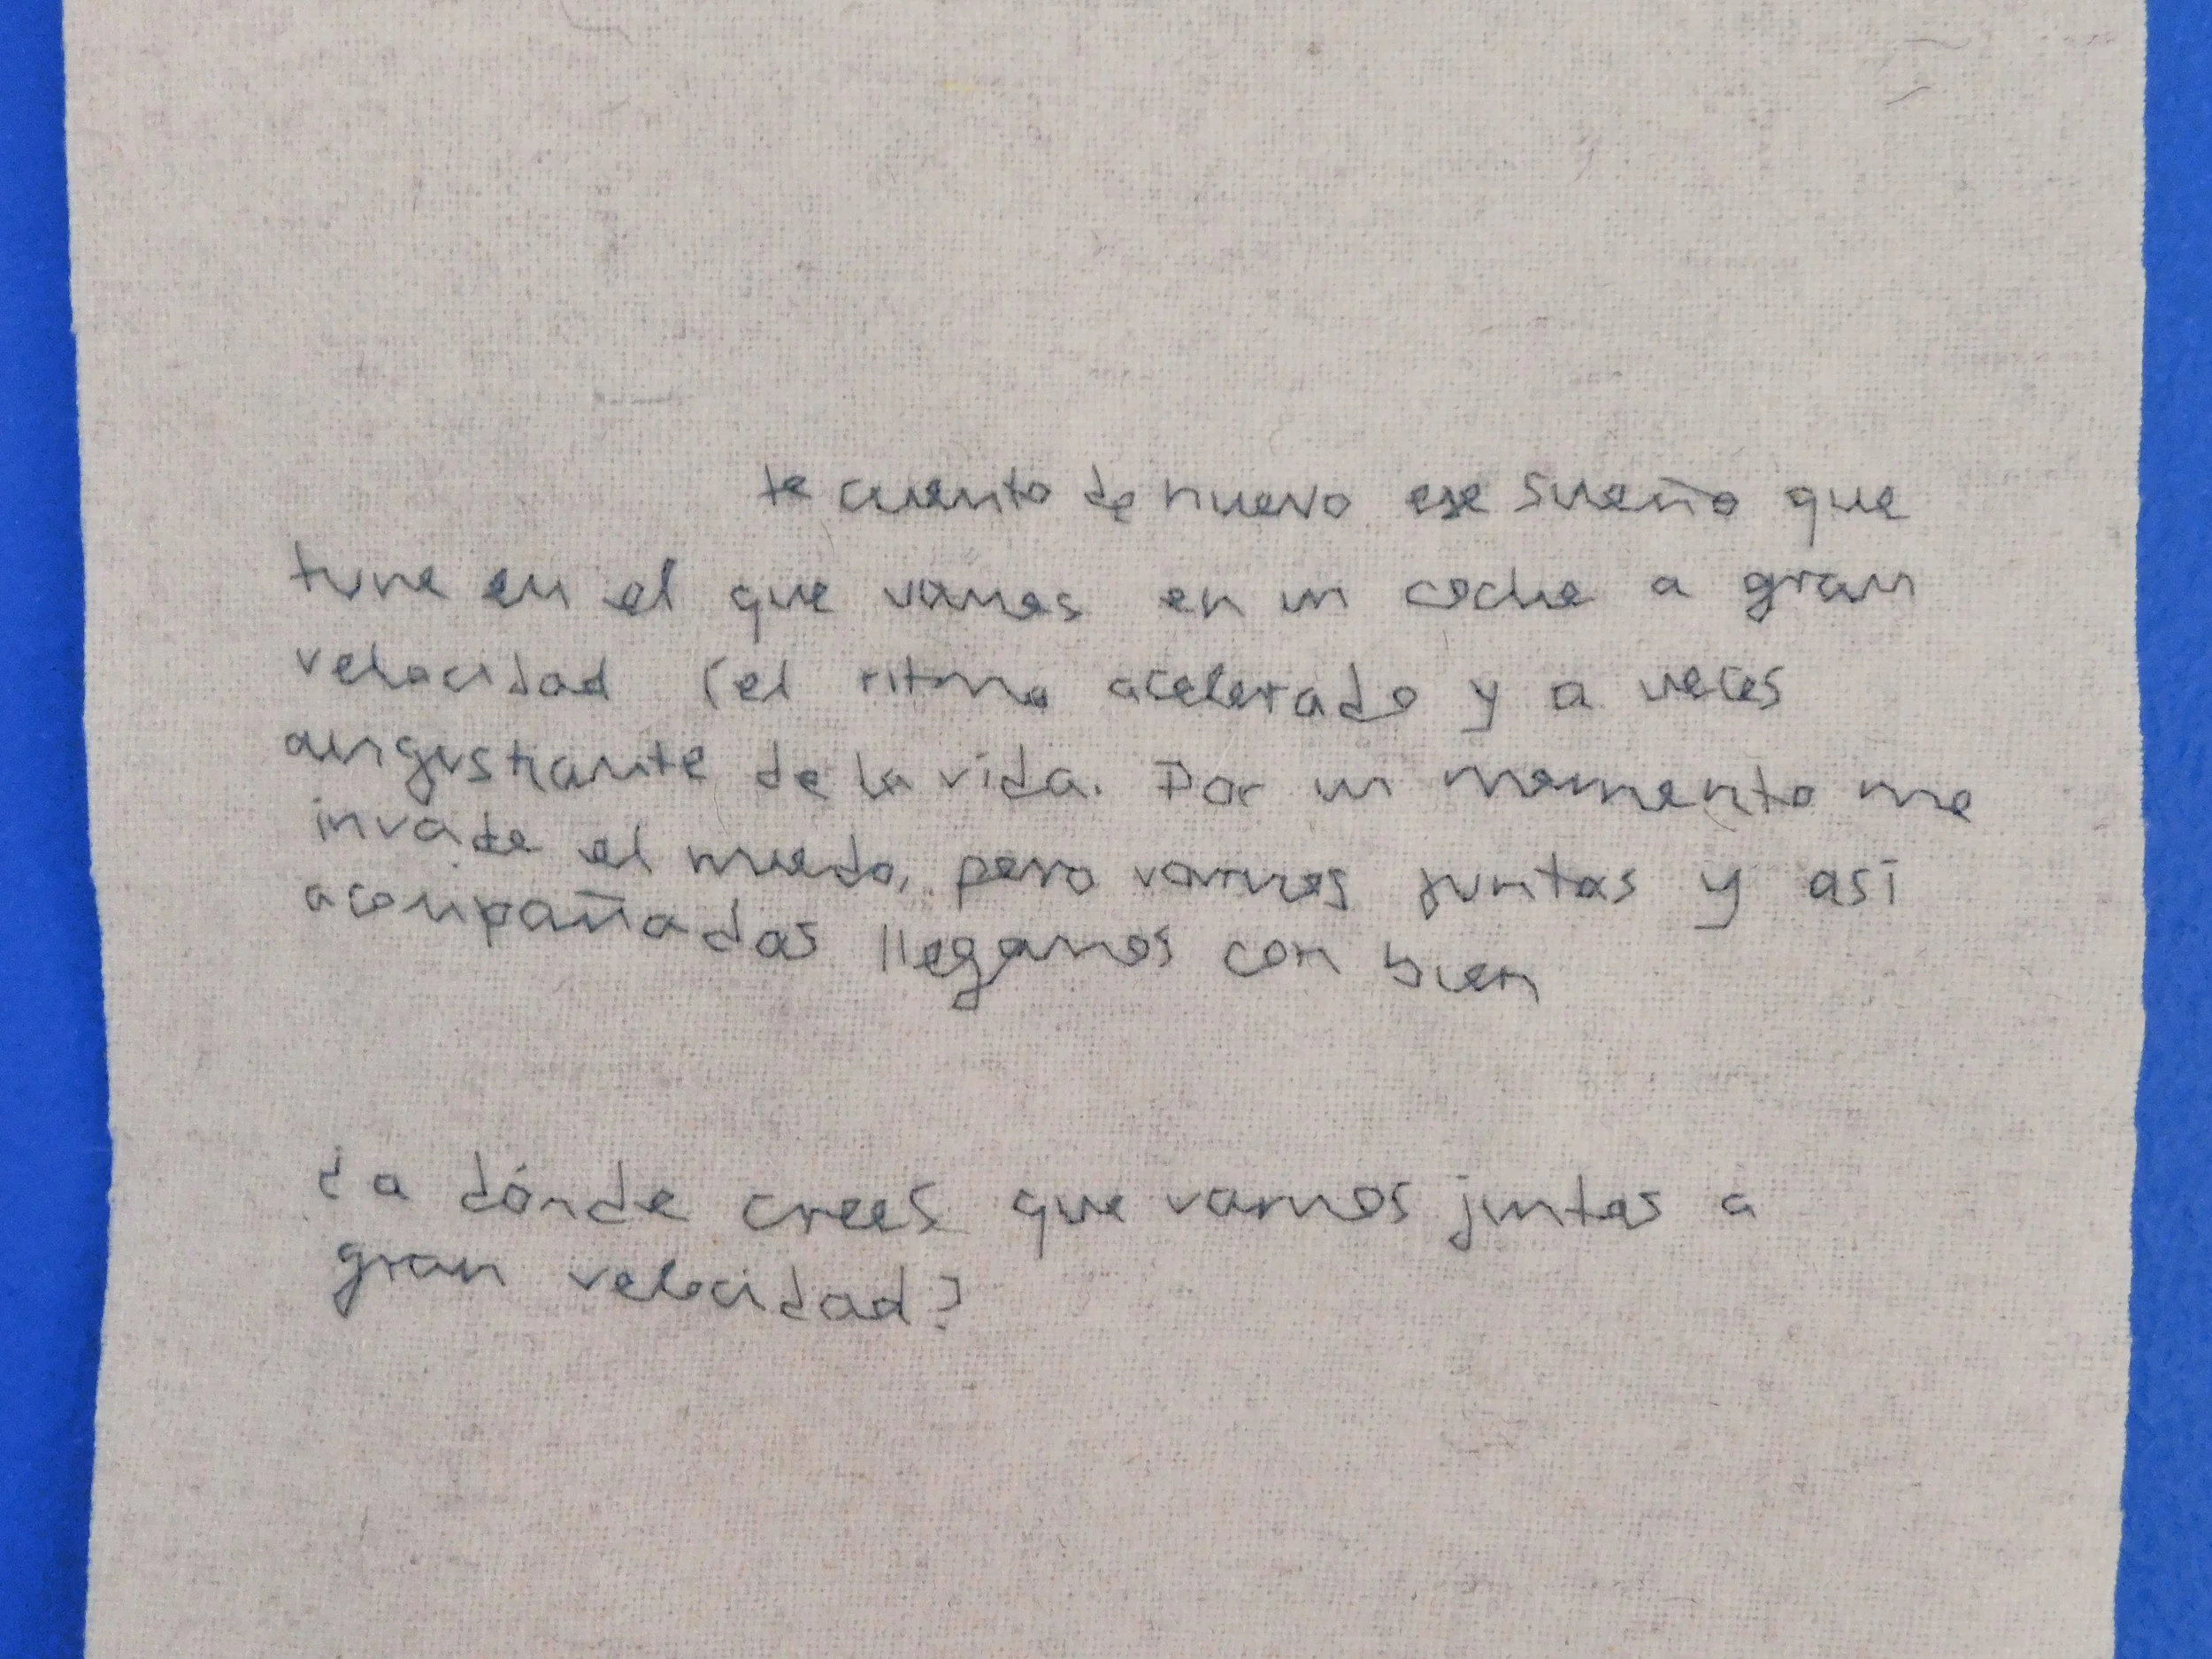 te cuento de nuevo ese sueño que
tuve en el que vamos en un coche a gran
velocidad (el ritmo acelerado y a veces
angustiante de la vida. Por un momento me
invade el miedo, pero vamos juntas y así
acompañadas llegamos con bien
¿a dónde crees que vamos juntas a
gran velocidad?